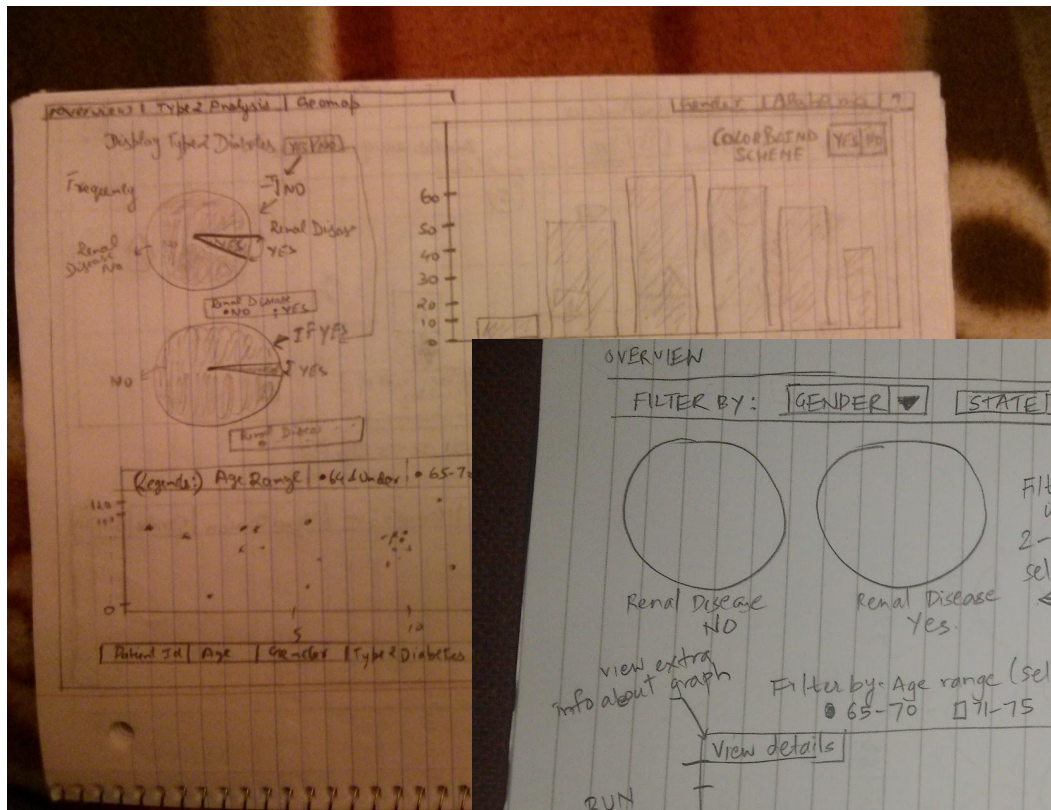 Overview | Type 2 Analysis | Geomap
Gender | Alabama | ?
Display Type 2 Diabetes YES NO
COLORBLIND
SCHEME YES NO
Frequency
NO
Renal Disease
YES
YES
Renal
Disease
NO
Renal Disease
•NO •YES
IF YES
YES
NO
60
50
40
30
20
10
0
(Legends:) Age Range | •64 & Under | •65-70
120
0
5
10
Patient Id | Age | Gender | Type 2 Diabetes
OVERVIEW
FILTER BY: GENDER STATE
Renal Disease
NO
Renal Disease
Yes.
2-
view extra
info about graph
Filter by: Age range (sel
65-70 71-75
View details
RUN